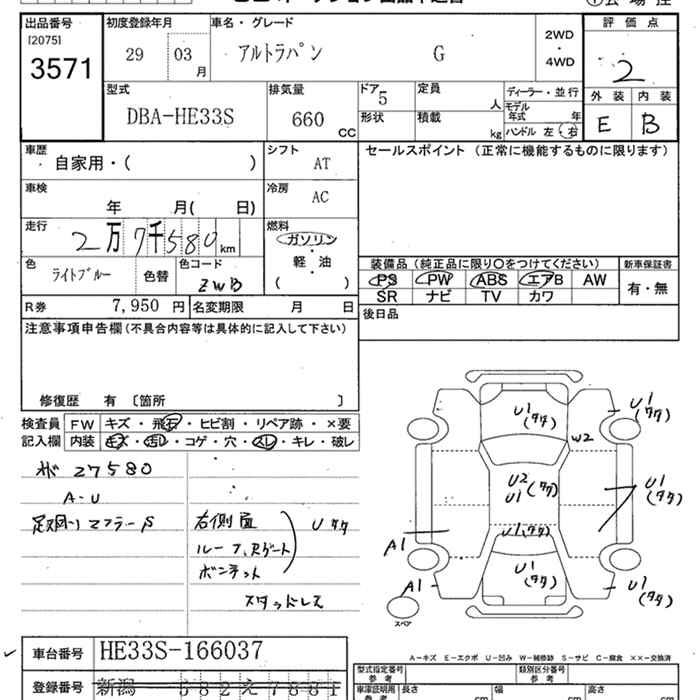 出品番号
[2075]
3571
初度登録年月
29 03 月
車名・グレード
アルトラパン G
2WD
・
4WD
評価点
2
外装 内装
E B
型式
DBA-HE33S
排気量
660 CC
ドア 5
定員
人
形状
積載
kg
ディーラー・並行
モデル年式 年
ハンドル 左・右
車歴
自家用・( )
シフト
AT
セールスポイント (正常に機能するものに限ります)
車検
年 月( 日)
冷房
AC
走行
2万7千580 km
燃料
ガソリン
・
軽・油
( )
色
ライトブルー
色替
色コード
ZWB
装備品 (純正品に限り○をつけてください)
PS PW ABS エアB AW
SR ナビ TV カワ
新車保証書
有・無
R券 7,950 円
名変期限 月 日
後日品
注意事項申告欄 (不具合内容等は具体的に記入して下さい)
修復歴 有 〔箇所 〕
検査員記入欄
FW キズ・飛石・ヒビ割・リペア跡・×要
内装 キズ・汚レ・コゲ・穴・スレ・キレ・破レ
27580
A-U
足回り マフラーS
右側面
ルーフ,Rゲート
ボンネット
Uタタ
スタッドレス
U1(タタ)
U1(タタ)
W2
U2
U1(タタ)
U1(タタ)
U1(タタ)
A1
U1(タタ)
A1
U1(タタ)
スペア
A-キズ E-エクボ U-凹み W-補修跡 S-サビ C-腐食 XX-交換済
車台番号 HE33S-166037
登録番号 新潟 582 え 7881
型式指定番号
参考
類別区分番号
参考
車庫証明用
参考
長さ cm
幅 cm
高さ cm